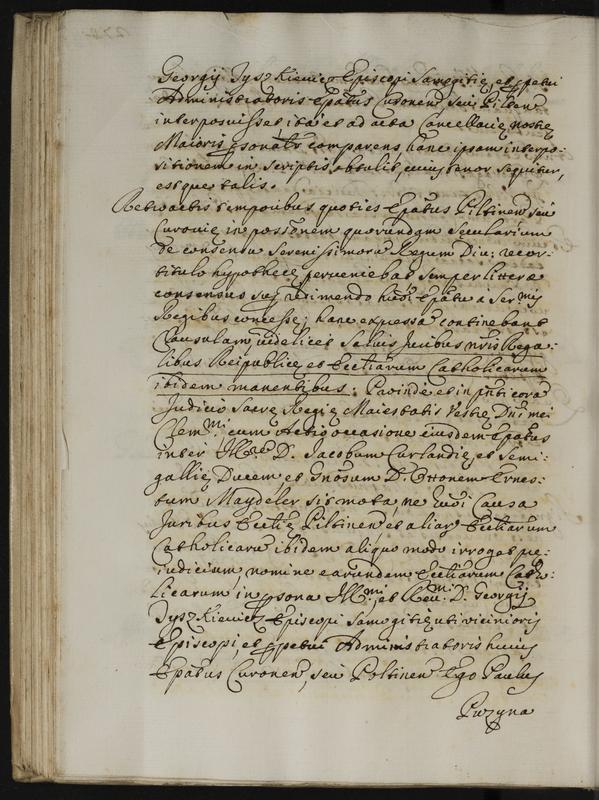 Georgij Tyszkiewicz Episcopi Samogitię, et ppetui
Administratoris Epatus Curonen seu Pilten
interposuisset ita et ad acta Cancellarię nostrę
Maioris psonalr comparens hanc ipsam interpo-
sitionem in scriptis obtulit, cuius tenor sequitur,
estque talis.
Retroactis temporibus quoties Epatus Piltinen seu
Curonię in possnem quorundam Secularium
de consensu Serenissimorū Regum Diu: recor:
titulo hypothecę perveniebat semper litterę
consensus sup redimendo huiōi Epatu a Sermis
Regibus concessę; hanc expressā continebant
Clausulam videlicet Salvis Juribus nr̄is Rega:
libus Reipublicę et Eccliarum Catholicarum
ibidem manentibus: Proinde et in pn̄ti corā
Judicio Sacrę Regię Maiestatis Vestrę Dn̄i mei
Clemmi, cum Actio occasione eiusdem Epatus
inter Illrē D. Jacobum Curlandię, et Semi-
gallię Ducem, et Gnosum D. Ottonem Ernes:
tum Maydeler sit mota ne huiōi Causa
Juribus Ecclię Piltinen, et aliar Eccliarum
Catholicarū ibidem aliquo modo irroget prę-
iudicium, nomine earundem Eccliarum Catho-
licarum, in psona Illmi, et Reumi D. Georgij
Tyszkiewicz Episcopi Samogitię uti vicinioris
Episcopi, et ppetui Administratoris huius
Epatus Curonen, seu Poltinen Ego Paulus
Puzyna